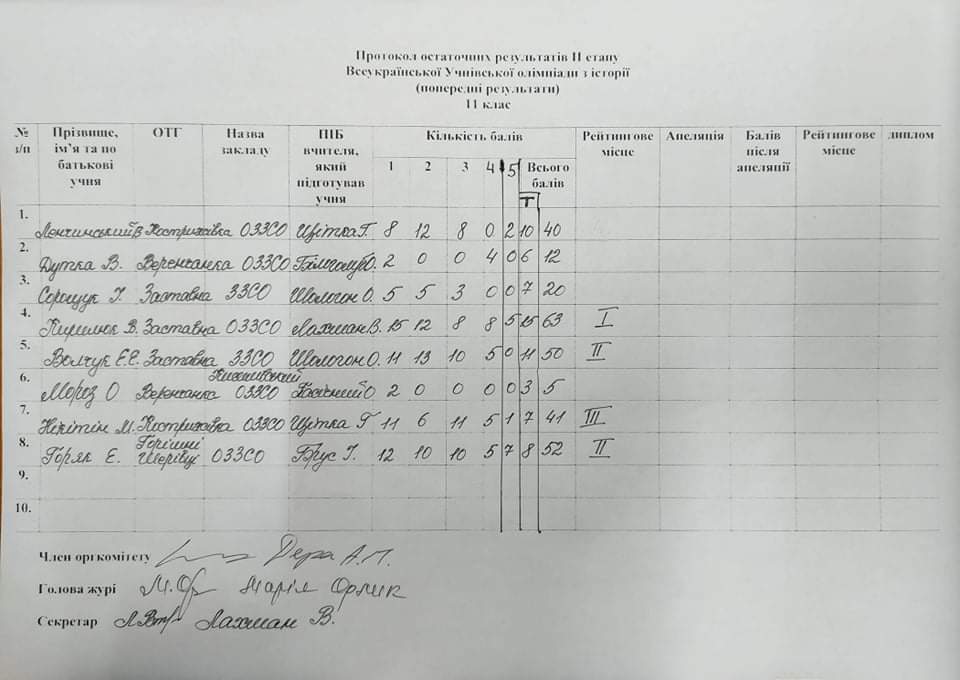 Протокол остаточних результатів II етапу
Всеукраїнської Учнівської олімпіади з історії
(попередні результати)
11 клас
№ з/п Прізвище, ім'я та по батькові учня ОТГ Назва закладу ПІБ вчителя, який підготував учня Кількість балів Рейтингове місце Апеляція Балів після апеляції Рейтингове місце диплом
1 2 3 4 5 Т Всього балів
1. Ленчинський В Кострижівка ОЗЗСО Щітка Г. 8 12 8 0 2 10 40
2. Дутка В. Веренчанка ОЗЗСО О. 2 0 0 4 0 6 12
3. Сорощук І. Заставна ЗЗСО Шологон О. 5 5 3 0 0 7 20
4. Кирилюк В. Заставна ОЗЗСО Лахман В. 15 12 8 8 5 15 63 I
5. Волчук Е.Е. Заставна ЗЗСО Шологон О. 11 13 10 5 0 11 50 II
6. Мороз О Веренчанка ОЗЗСО О 2 0 0 0 0 3 5
7. Нікітін М. Кострижівка ОЗЗСО Щітка Г 11 6 11 5 1 7 41 III
8. Горяк Е. Горішні Шерівці ОЗЗСО Брус Г. 12 10 10 5 7 8 52 II
9.
10.
Член оргкомітету Дера А.П.
Голова журі М.Ор Марія Орлик
Секретар Лахман В.